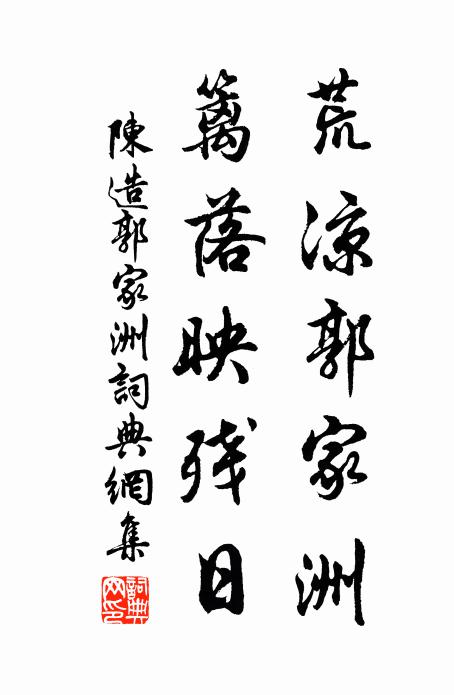 荒凉郭家洲
篱落映残日
陳造郭家洲詞典網集
詞典